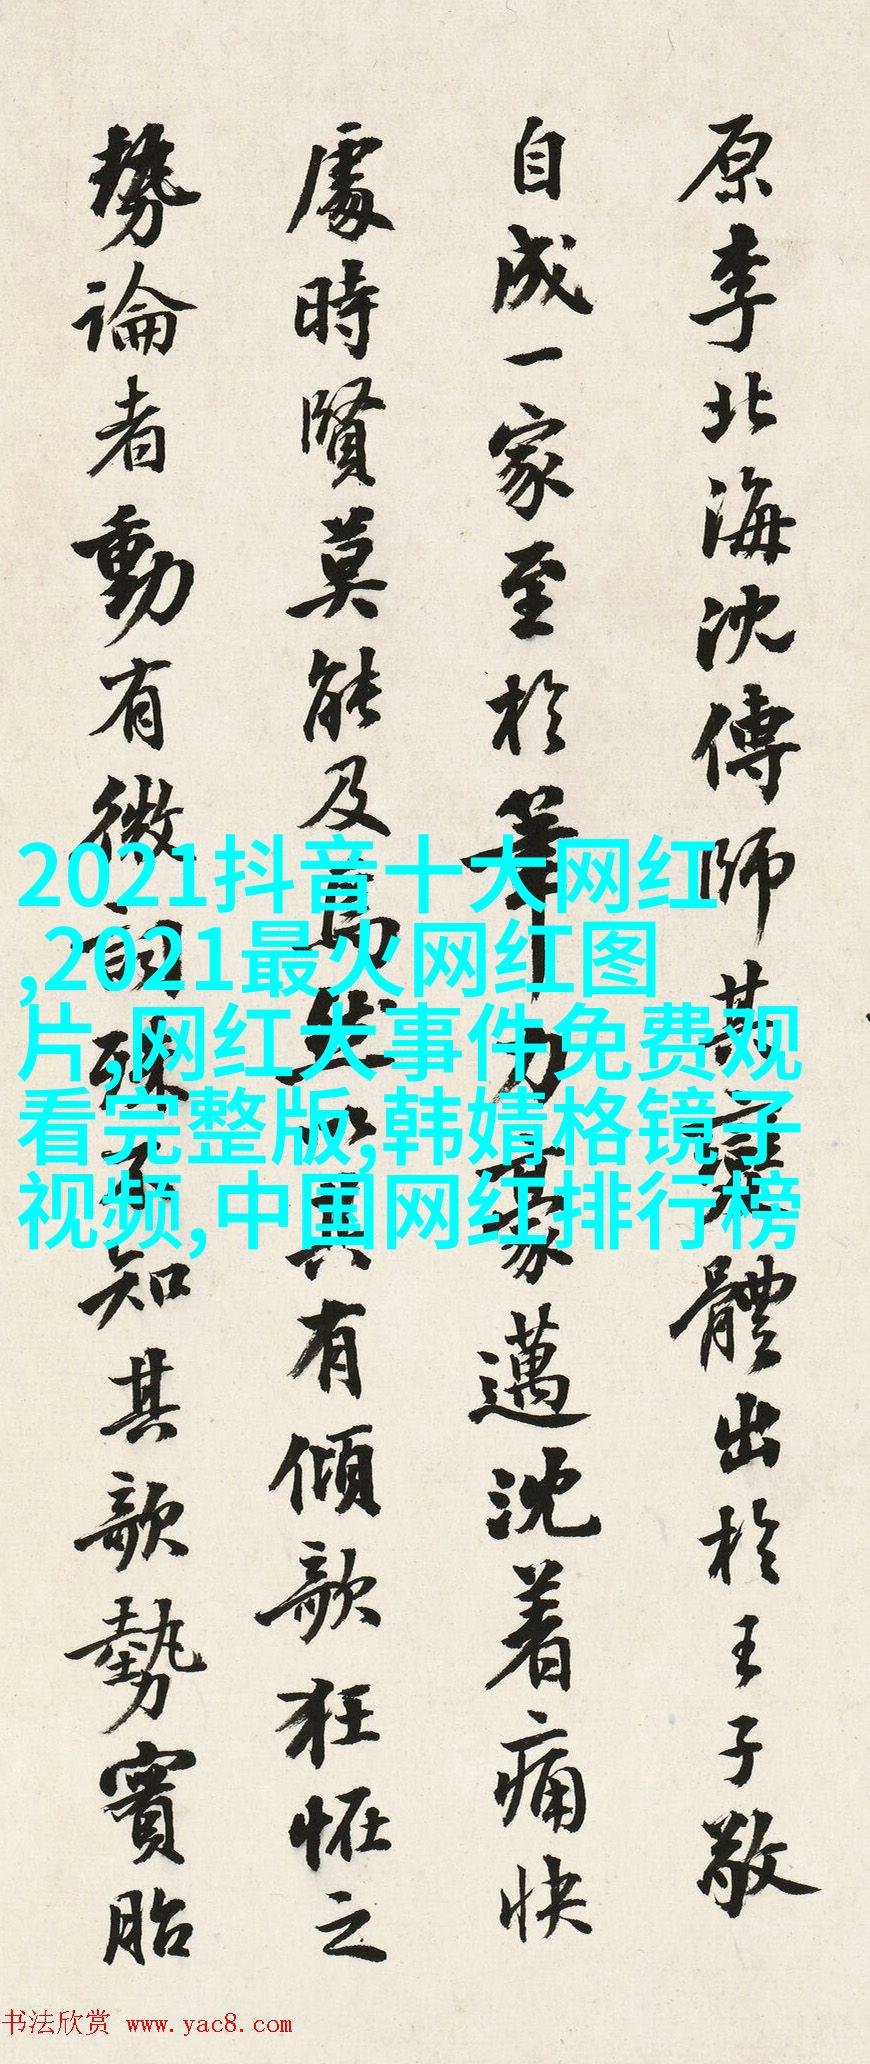 原李北海沈傳師其變體出於王子敬
自成一家至於筆力豪邁沈着痛快
處時賢莫能及焉然以其有傾欹狂怪之
勢論者動有微詞殊不知其欹勢實胎
2021抖音十大网红
,2021最火网红图
片,网红大事件免费观
看完整版,韩婧格镜子
视频,中国网红排行榜
书法欣赏 www.yac8.com